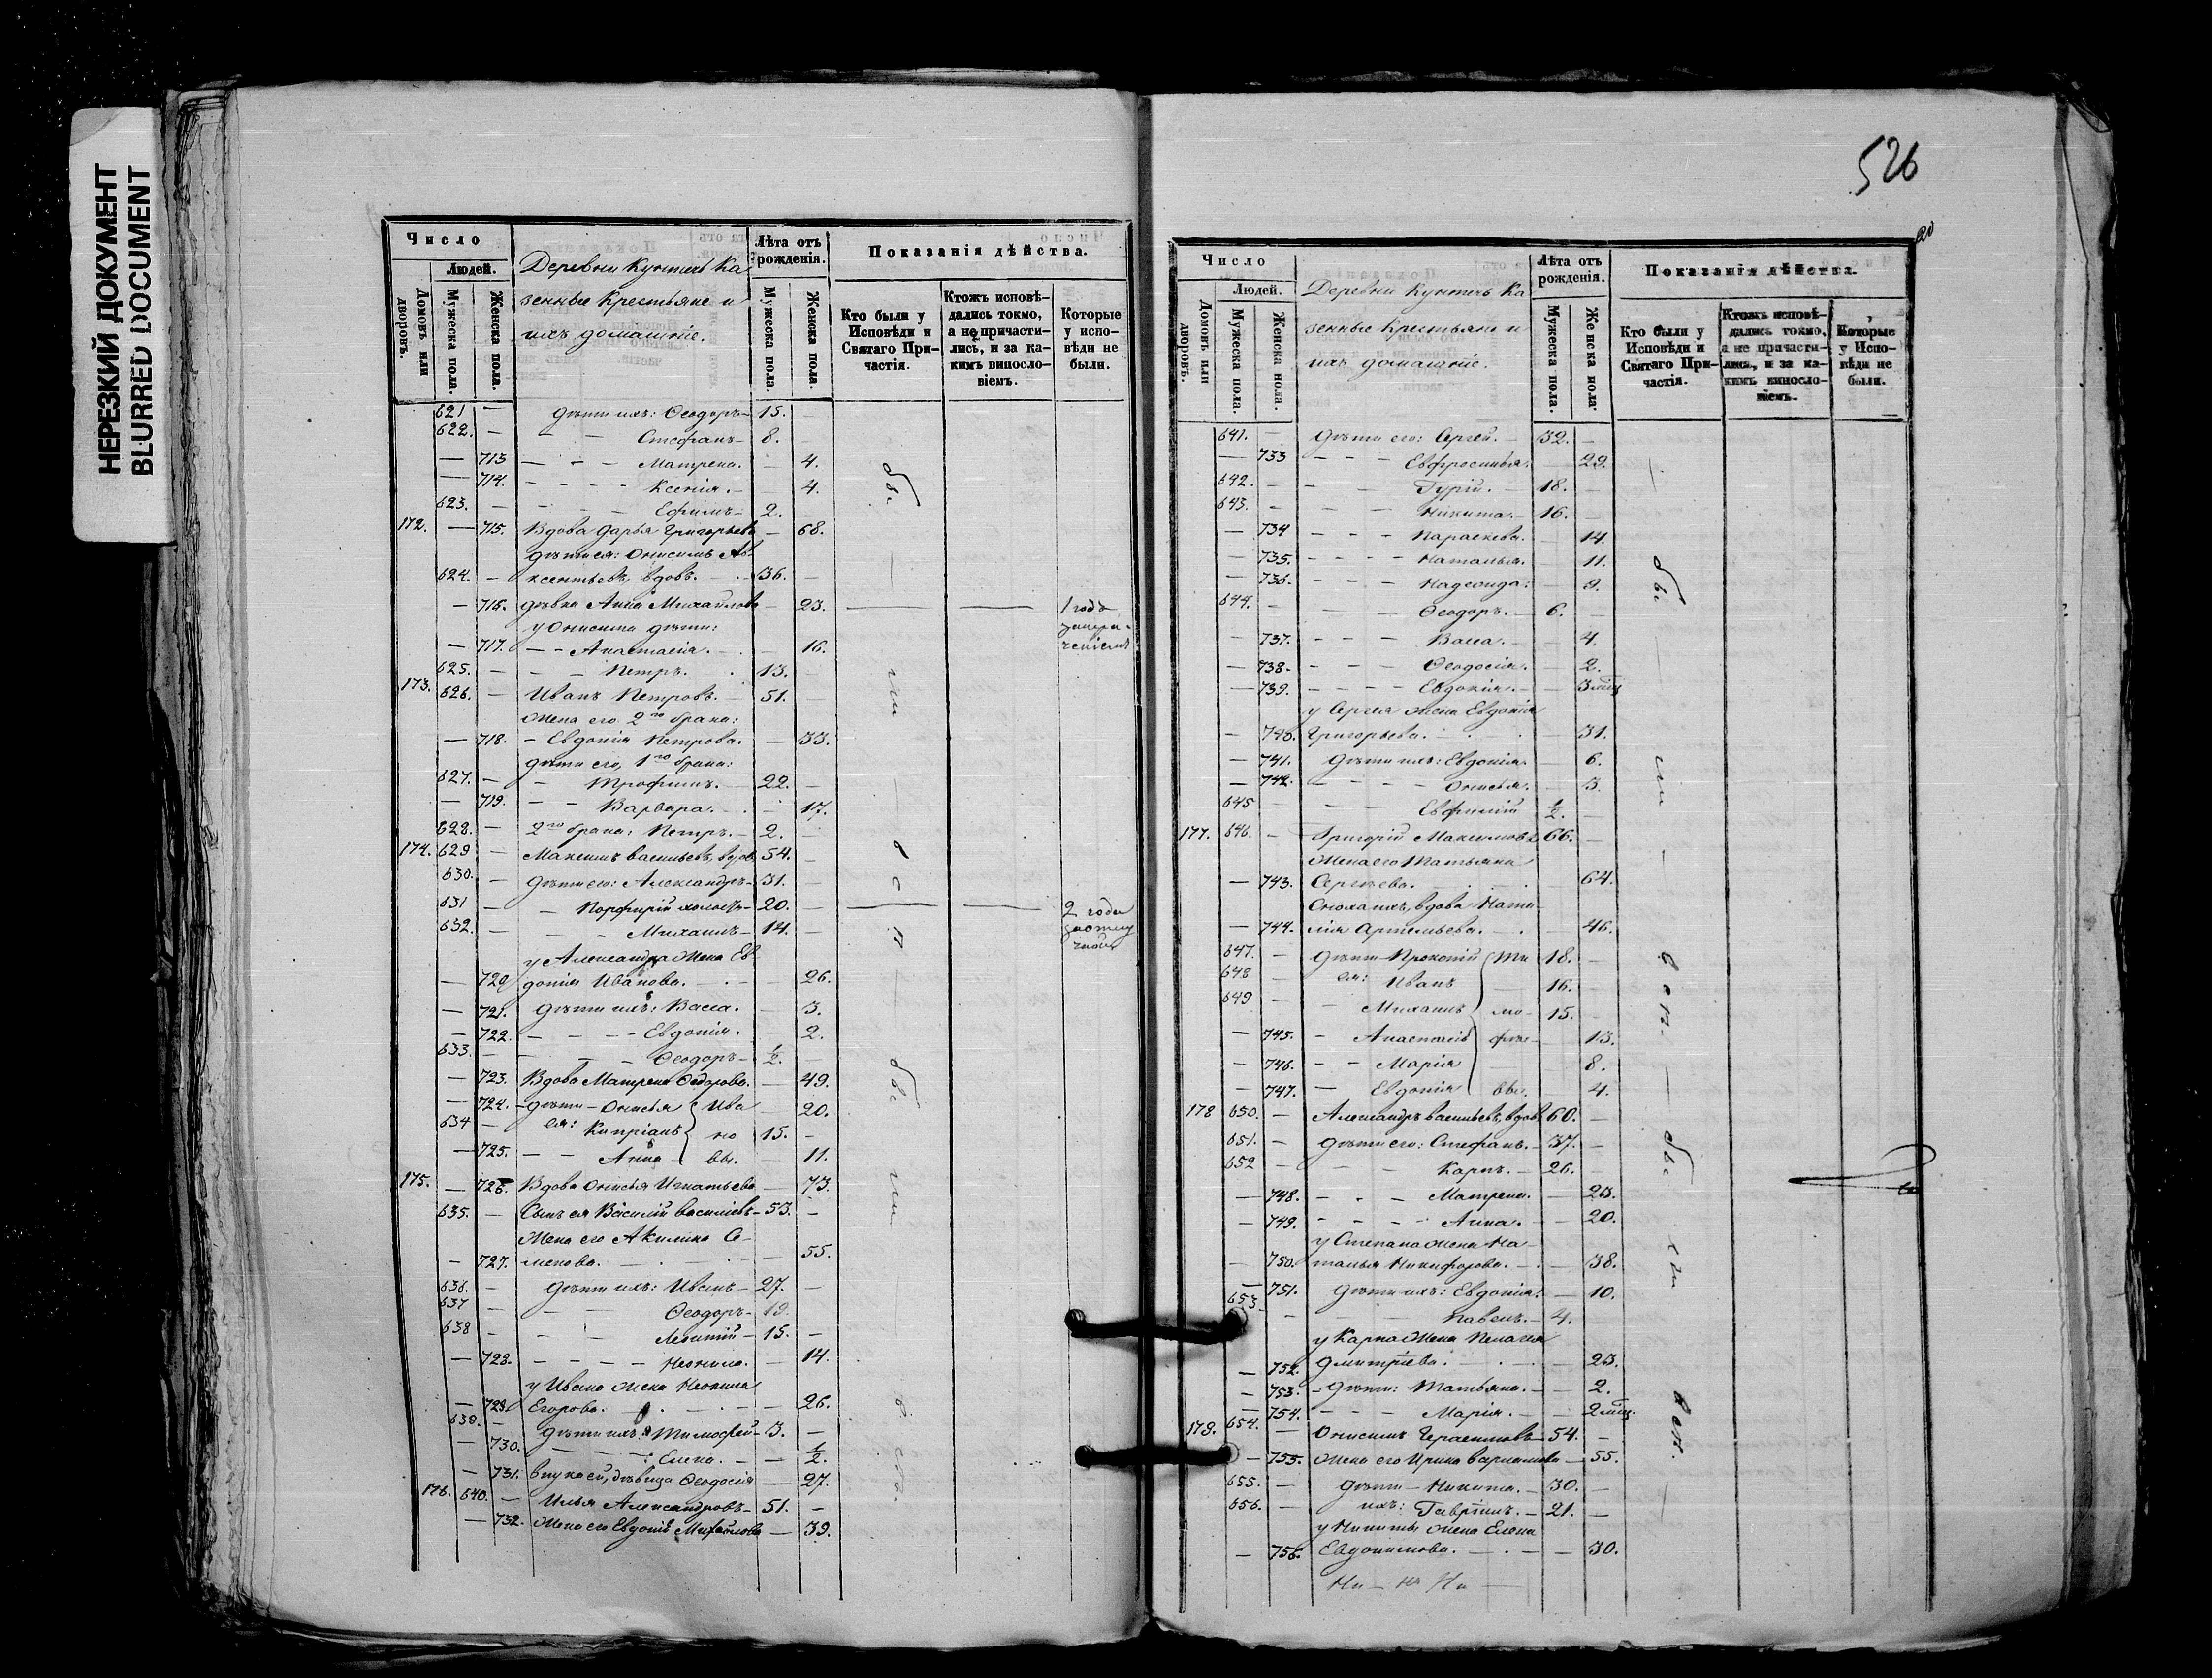 НЕРЕЗКИЙ ДОКУМЕНТ
BLURRED DOCUMENT
Число
Людей.
Домовъ или дворовъ.
Мужеска пола.
Женска пола.
Деревни Кунтичъ Ка
зенные Крестьяне и
ихъ домашніе.
Лѣта отъ рожденія.
Мужеска пола.
Женска пола.
Показанія дѣйства.
Кто были у Исповѣди и Святаго При-частія.
Ктожъ исповѣ-дались токмо, а не причасти-лись, и за ка-кимъ винословіемъ.
Которые у испо-вѣди не были.
621 — дѣти ихъ: Ѳеодоръ — 15. —
622. — — Стефанъ — 8. —
— 713 — Матрена. — 4.
— 714. — Ксенія. — 4.
623. — — Ефимъ — 2. —
172. — 715. Вдова Дарья Григорьева — 68.
дѣти ея: Онисимъ Ав
624. — ксентьевъ, вдовъ. — 36. —
— 716. дѣвка Анна Михайлова — 23. — — 1 годъ
у Онисима дѣти:
— 717. — Анастасія. — 16.
625. — — Петръ. 13. —
173. 626. — Иванъ Петровъ. 51.
Жена его 2го брака:
— 718. — Евдокія Петрова. — 33.
дѣти его, 1го брака:
627. — — Трофимъ. 22. —
— 719. — Варвара. — 17.
628. — 2го брака: Петръ. — 2. —
174. 629 — Максимъ Васильевъ, вдовъ 54. —
630. — дѣти его: Александръ — 31. —
631 — — Порфирій холостъ — 20. — — — 2 года
632. — — Михаилъ — 14. —
у Александра Жена Ев
— 720 докія Иванова. — 26.
— 721. дѣти ихъ: Васса. — 3.
— 722. — Евдокія. — 2.
633. — — Ѳеодоръ — ½. —
— 723. Вдова Матрена Ѳедорова. — 49.
— 724. — дѣти — Онисья Ива — 20.
634 — ея: Кипріанъ но 15. —
— 725. — Анна вы. — 11.
175. — 726. Вдова Онисья Игнатьева — 73.
635. — Сынъ ея Василій Васильевъ — 53. —
Жена его Акилина Се-
— 727. менова. — 55.
636. — дѣти ихъ: Иванъ — 27. —
637 — — Ѳеодоръ — 19.
638 — — Леонтій — 15. —
— 728. — Неонила. — 14.
у Ивана Жена Неонила
— 729. Егорова. — 26.
639. — дѣти ихъ: Тимоѳей — 3. —
— 730. — Елена. — ½.
— 731. внука ей, дѣвица Ѳеодосія — 27.
176. 640. — Илья Александровъ — 51. —
— 732. Жена его Евдокія Михайлова — 39.
были
у исп
обы
ли
у исп.
526
20
Число
Людей.
Домовъ или дворовъ.
Мужеска пола.
Женска пола.
Деревни Кунтичъ Ка
зенные Крестьяне и
ихъ домашніе.
Лѣта отъ рожденія.
Мужеска пола.
Женска пола.
Показанія дѣйства.
Кто были у Исповѣди и Святаго При-частія.
Ктожъ исповѣ-дались токмо, а не причасти-лись, и за ка-кимъ винословіемъ.
Которые у Испо-вѣди не были.
641. — дѣти его: Сергій. — 32. —
— 733 — Евфросинья. — 22.
642. — — Гурій. — 18. —
643. — — Никита. — 16. —
— 734 — Параскева. — 14.
— 735. — Наталья. — 11.
— 736. — Надежда. — 9.
644. — — Ѳеодоръ. — 6. —
— 737. — Васса. — 4.
— 738. — Ѳеодосія. — 2.
— 739. — Евдокія. — 3 мѣц
у Сергія жена Евдокія
— 740. Григорьева. — 31.
— 741. дѣти ихъ: Евдокія. — 6.
— 742. — Онисья. — 3.
645 — Евфимій ½. —
177. 646. — Григорій Максимовъ 66. —
Жена его Татьяна
— 743. Сергѣева. — 64.
Сноха ихъ, вдова Ната
— 744. лія Артемьева. — 46.
647. — дѣти Прокопій Ти 18. —
648 — ея: Иванъ — 16. —
649 — Михаилъ мо- 15. —
— 745. — Анастасія фѣе — 13.
— 746. — Марія — 8.
— 747. — Евдокія вы. — 4.
178 650. — Александръ Васильевъ, вдовъ 60. —
651. — дѣти его: Стефанъ. — 37. —
652 — — Карпъ. — 26. —
— 748. — Матрена. — 23.
— 749. — Анна. — 20.
у Степана Жена На-
— 750. талья Никифорова. — 38.
— 751. дѣти ихъ: Евдокія. — 10.
653. — Павелъ. — 4. —
у Карпа Жена Пелагія
— 752. Дмитріева. — 23.
— 753. — дѣти: Татьяна. — 2.
— 754. — Марія. — 2 мѣц.
179. 654. — Онисимъ Герасимовъ — 54. —
— 755. Жена его Ирина Варламова — 55.
655. — дѣти — Никита. — 30. —
656. — ихъ: Гавріилъ. — 21. —
у Никиты Жена Елена
— 756. Евдокимова. — 30.